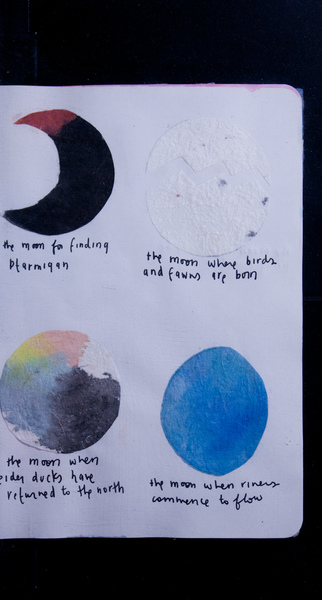 the moon for finding
ptarmigan
the moon where birds
and fawns are born
the moon when
eider ducks have
returned to the north
the moon when rivers
commence to flow